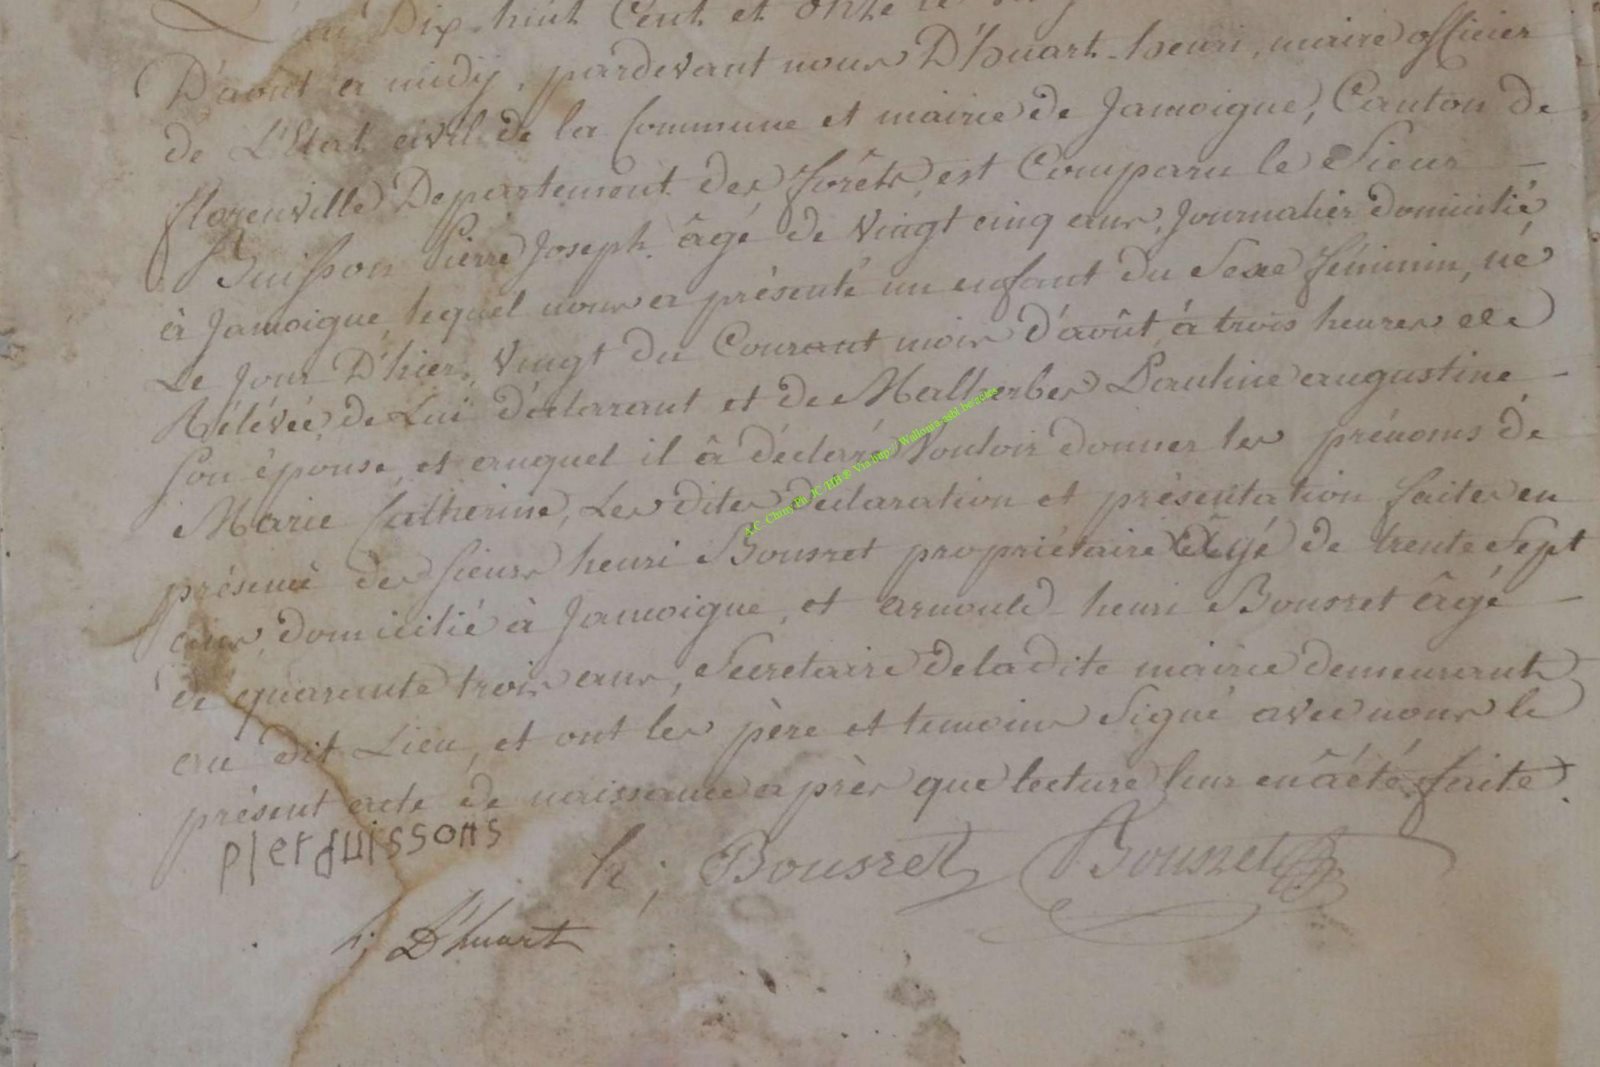 Dix-huit Cent et Onze le
D'aoút a midÿ, pardevant nous D'huart-henri, maire officier
de L'Etat civil de la Commune et mairie de Jamoigne, Canton de
florenville Departement des forêts, est Comparu le Sieur
Buisson Pierre Joseph. âgé de vingt cinq ans, Journalier domicilié
à Jamoigne, lequel nous a présenté un enfant du Sexe féminin, né
Le Jour D'hier, vingt du Courant mois d'août, à trois heures de
Rélévée, de Lui déclarant et de Malherbes Pauline augustine
Son épouse, et auquel il â déclaré Vouloir donner les prénoms de
Marie Catherine, Les dites declaration et présentation faites en
présence des sieurs henri Bousret propriétaire âgé de trente Sept
ans, domicilié à Jamoigne, et arnould henri Bousret âgé
de quarante trois ans, Secretaire deladite mairie demeurant
au dit Lieu, et ont les père et temoins Signé avec nous le
présent acte de naissance après que lecture leur en â été faite.
pierbuissons
h; Bousret Bousret
h; D'huart
A.C. Chiny Ph. JC/HB ® Via http://Wallonia-asbl.be/actes